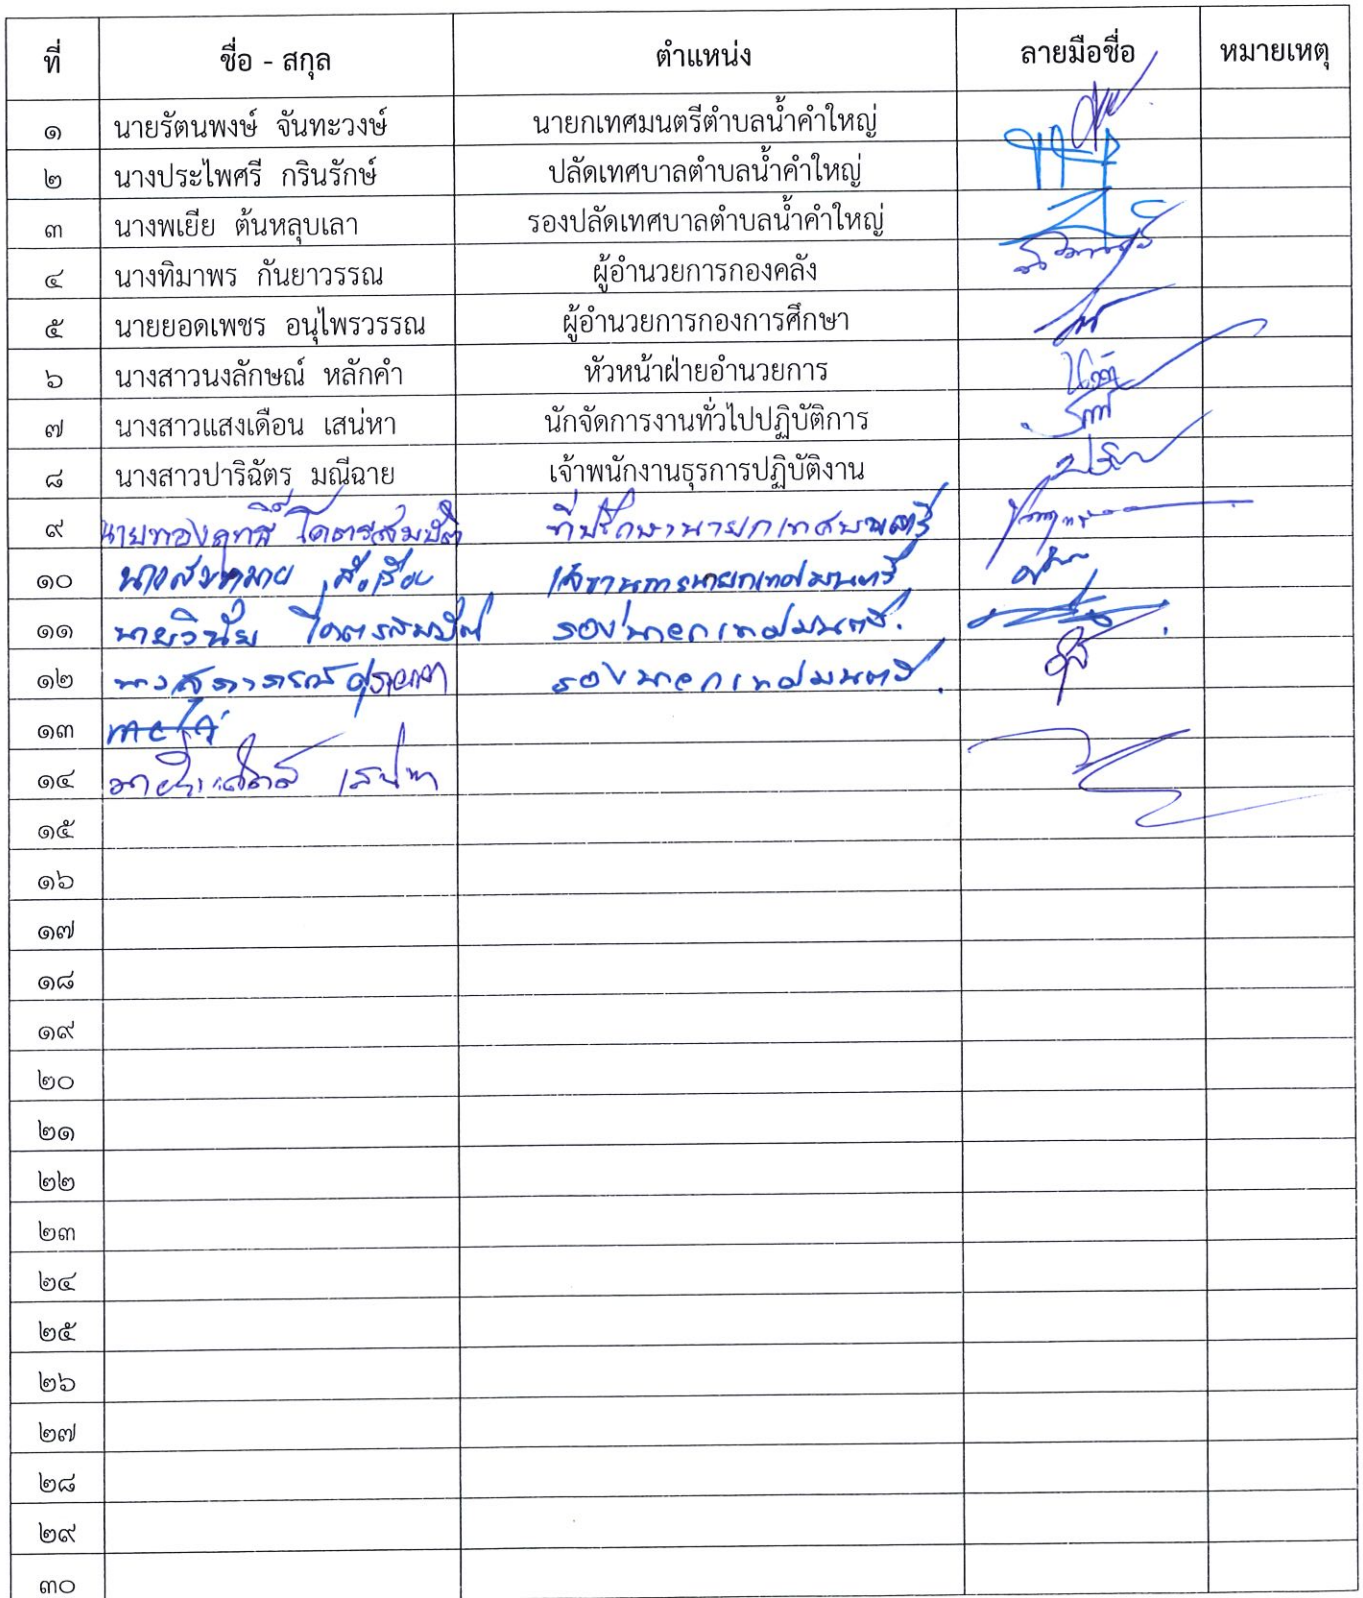 ที่ ชื่อ - สกุล ตำแหน่ง ลายมือชื่อ หมายเหตุ
๑ นายรัตนพงษ์ จันทะวงษ์ นายกเทศมนตรีตำบลน้ำคำใหญ่
๒ นางประไพศรี กรินรักษ์ ปลัดเทศบาลตำบลน้ำคำใหญ่
๓ นางพเยีย ต้นหลุบเลา รองปลัดเทศบาลตำบลน้ำคำใหญ่
๔ นางทิมาพร กันยาวรรณ ผู้อำนวยการกองคลัง
๕ นายยอดเพชร อนุไพรวรรณ ผู้อำนวยการกองการศึกษา
๖ นางสาวนงลักษณ์ หลักคำ หัวหน้าฝ่ายอำนวยการ
๗ นางสาวแสงเดือน เสน่หา นักจัดการงานทั่วไปปฏิบัติการ
๘ นางสาวปาริฉัตร มณีฉาย เจ้าพนักงานธุรการปฏิบัติงาน
๙ โคตรสมบัติ ที่ปรึกษานายกเทศมนตรี
๑๐ เลขานุการนายกเทศมนตรี
๑๑ นายวินัย โคตรสมบัติ รองนายกเทศมนตรี.
๑๒ รองนายกเทศมนตรี.
๑๓
๑๔ เสน่หา
๑๕
๑๖
๑๗
๑๘
๑๙
๒๐
๒๑
๒๒
๒๓
๒๔
๒๕
๒๖
๒๗
๒๘
๒๙
๓๐